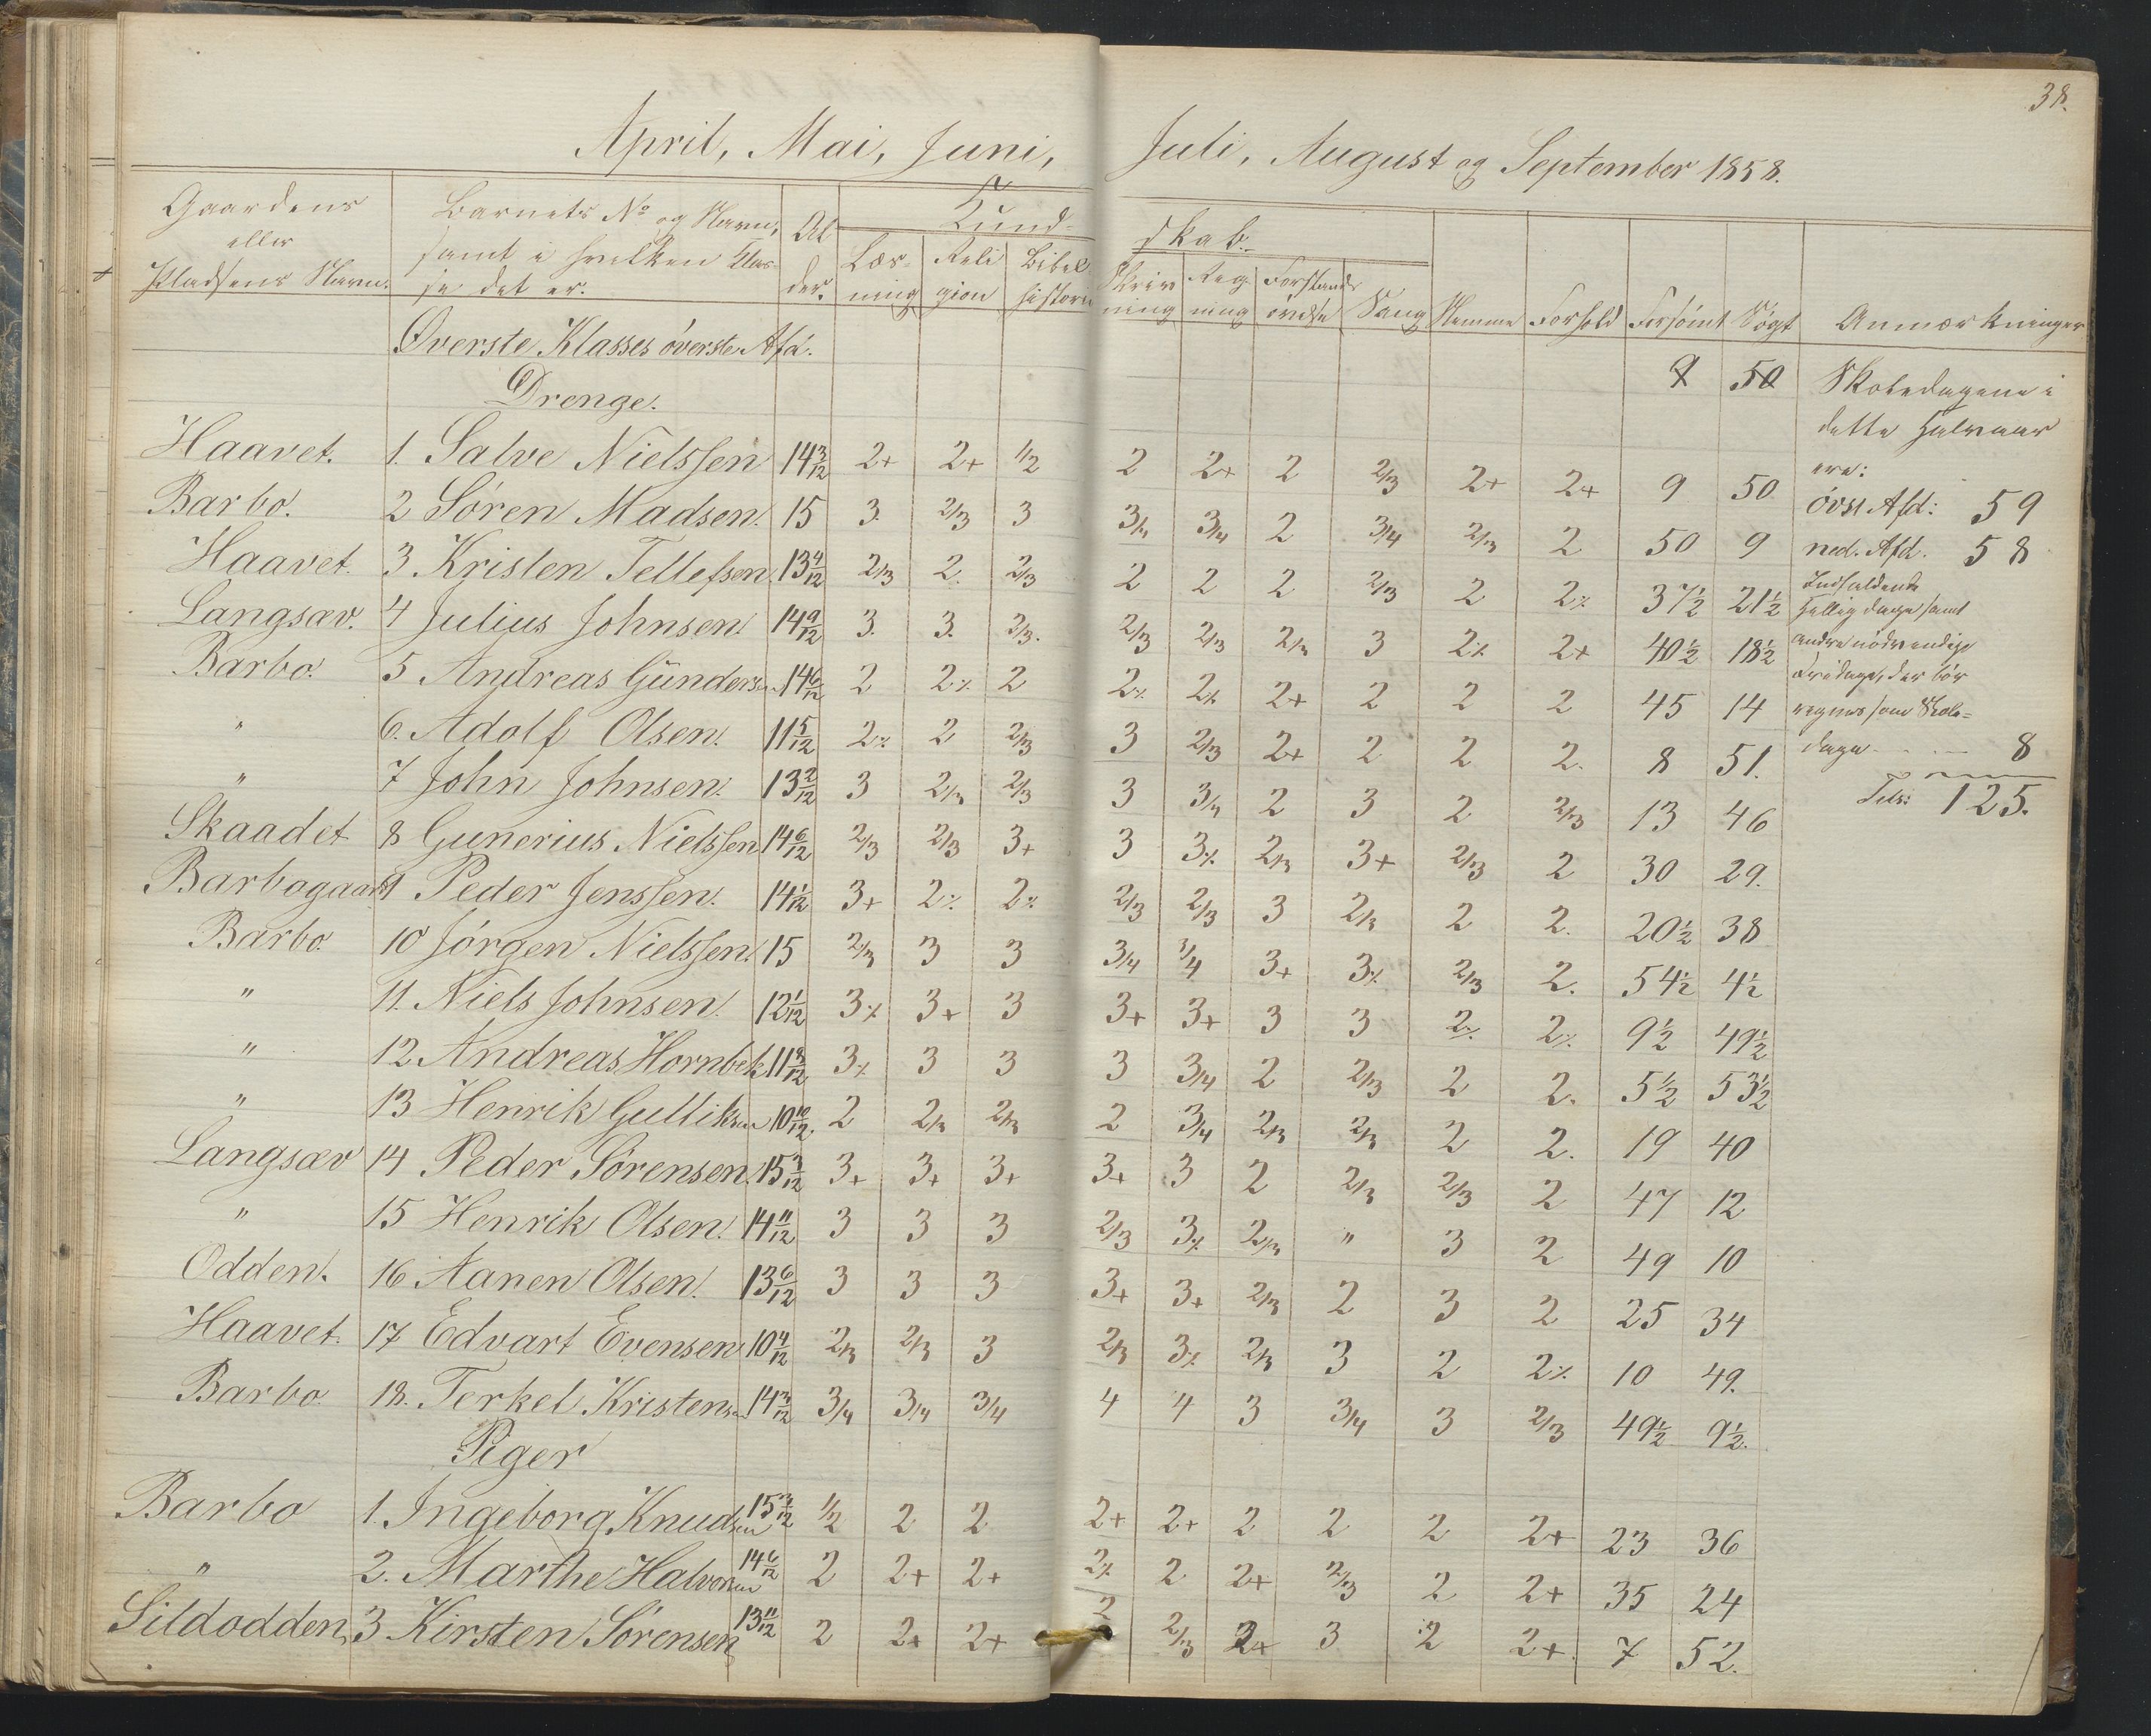 38.
April, Mai, Juni, Juli, August og September 1858.
Gaardens eller Pladsens Navn. | Barnets No og Navn, samt i hvilken Klasse det er. | Alder. | Kundskab. Læsning | Religion | Bibelhistorie | Skrivning | Regning | Forstandsøvelse | Sang | Nemme | Forhold | Forsömt | Søgt | Anmærkninger
Øverste Klasses øverste Afd. 9 50
Drenge.
Haavet. 1. Salve Nielssen 14 3/12 2+ 2+ 1/2 2 2+ 2 2/3 2+ 2+ 9 50
Barbo. 2 Søren Madsen. 15 3. 2/3 3 3/4 3/4 2 3/4 2/3 2 50 9
Haavet. 3 Kristen Tellefsen 13 4/12 2/3 2. 2/3 2 2 2 2/3 2 2% 37 1/2 21 1/2
Langsæv. 4 Julius Johnsen. 14 9/12 3. 3. 2/3. 2/3 2/3 2/3 3 2% 2+ 40 1/2 18 1/2
Barbo. 5 Andreas Gündersen 14 6/12 2 2% 2 2% 2% 2+ 2 2 2 45 14
" 6. Adolf Olsen. 11 5/12 2% 2 2/3 3 2/3 2+ 2 2 2. 8 51.
" 7 John Johnsen. 13 2/12 3 2/3 2/3 3 3/4 2 3 2 2/3 13 46
Skaadet 8 Gunerius Nielssen 14 6/12 2/3 2/3 3+ 3 3% 2/3 3+ 2/3 2 30 29.
Barbogaard 9 Peder Jenssen. 14 1/12 3+ 2% 2% 2/3 2/3 3 2/3 2 2. 20 1/2 38
Barbo. 10 Jörgen Nielssen. 15 2/3 3 3 3/4 3/4 3+ 3% 2/3 2. 54 1/2 4 1/2
" 11. Niels Johnsen. 12 1/12 3% 3+ 3 3+ 3+ 3 3 2% 2% 9 1/2 49 1/2
" 12 Andreas Hornbek 11 8/12 3% 3 3 3 3/4 2 2/3 2 2. 5 1/2 53 1/2
" 13 Henrik Gulliksen 10 10/12. 2 2/3 2/3 2 3/4 2/3 2/3 2 2. 19 40
Langsæv 14 Peder Sörensen. 15 3/12 3+ 3+ 3+ 3+ 3 2 2/3 2/3 2 47 12
" 15 Henrik Olsen. 14 11/12 3 3 3 2/3 3% 2/3 " 3 2 49 10
Odden. 16 Aanen Olsen. 13 6/12 3 3 3 3+ 3+ 2/3 2 3 2 25 34
Haavet. 17 Edvart Evensen 10 4/12 2/3 2/3 3 2/3 3% 2/3 3 2 2% 10 49.
Barbo. 18. Terkel Kristensen 14 3/12 3/4 3/4 3/4 4 4 3 3/4 3 2/3 49 1/2 9 1/2.
Piger
Barbo 1. Ingeborg Knudsen 15 3/12 1/2 2 2 2+ 2+ 2 2 2 2+ 23 36
" 2. Marthe Halvorsen 14 6/12 2 2+ 2+ 2% 2 2+ 2/3 2 2+ 35 24
Sildodden, 3 Kirsten Sörensen 13 11/12 2 2+ 2+ 2 2/3 2+ 3 2 2+. 7 52.
Skoledagene i
dette Halvaar
ere:
övst Afd: 59
ned. Afd. 58
Indfaldende
Helligdage samt
andre nødvendige
Fridage, der bör
regnes som Skole=
dage - - - 8
Tils: 125.